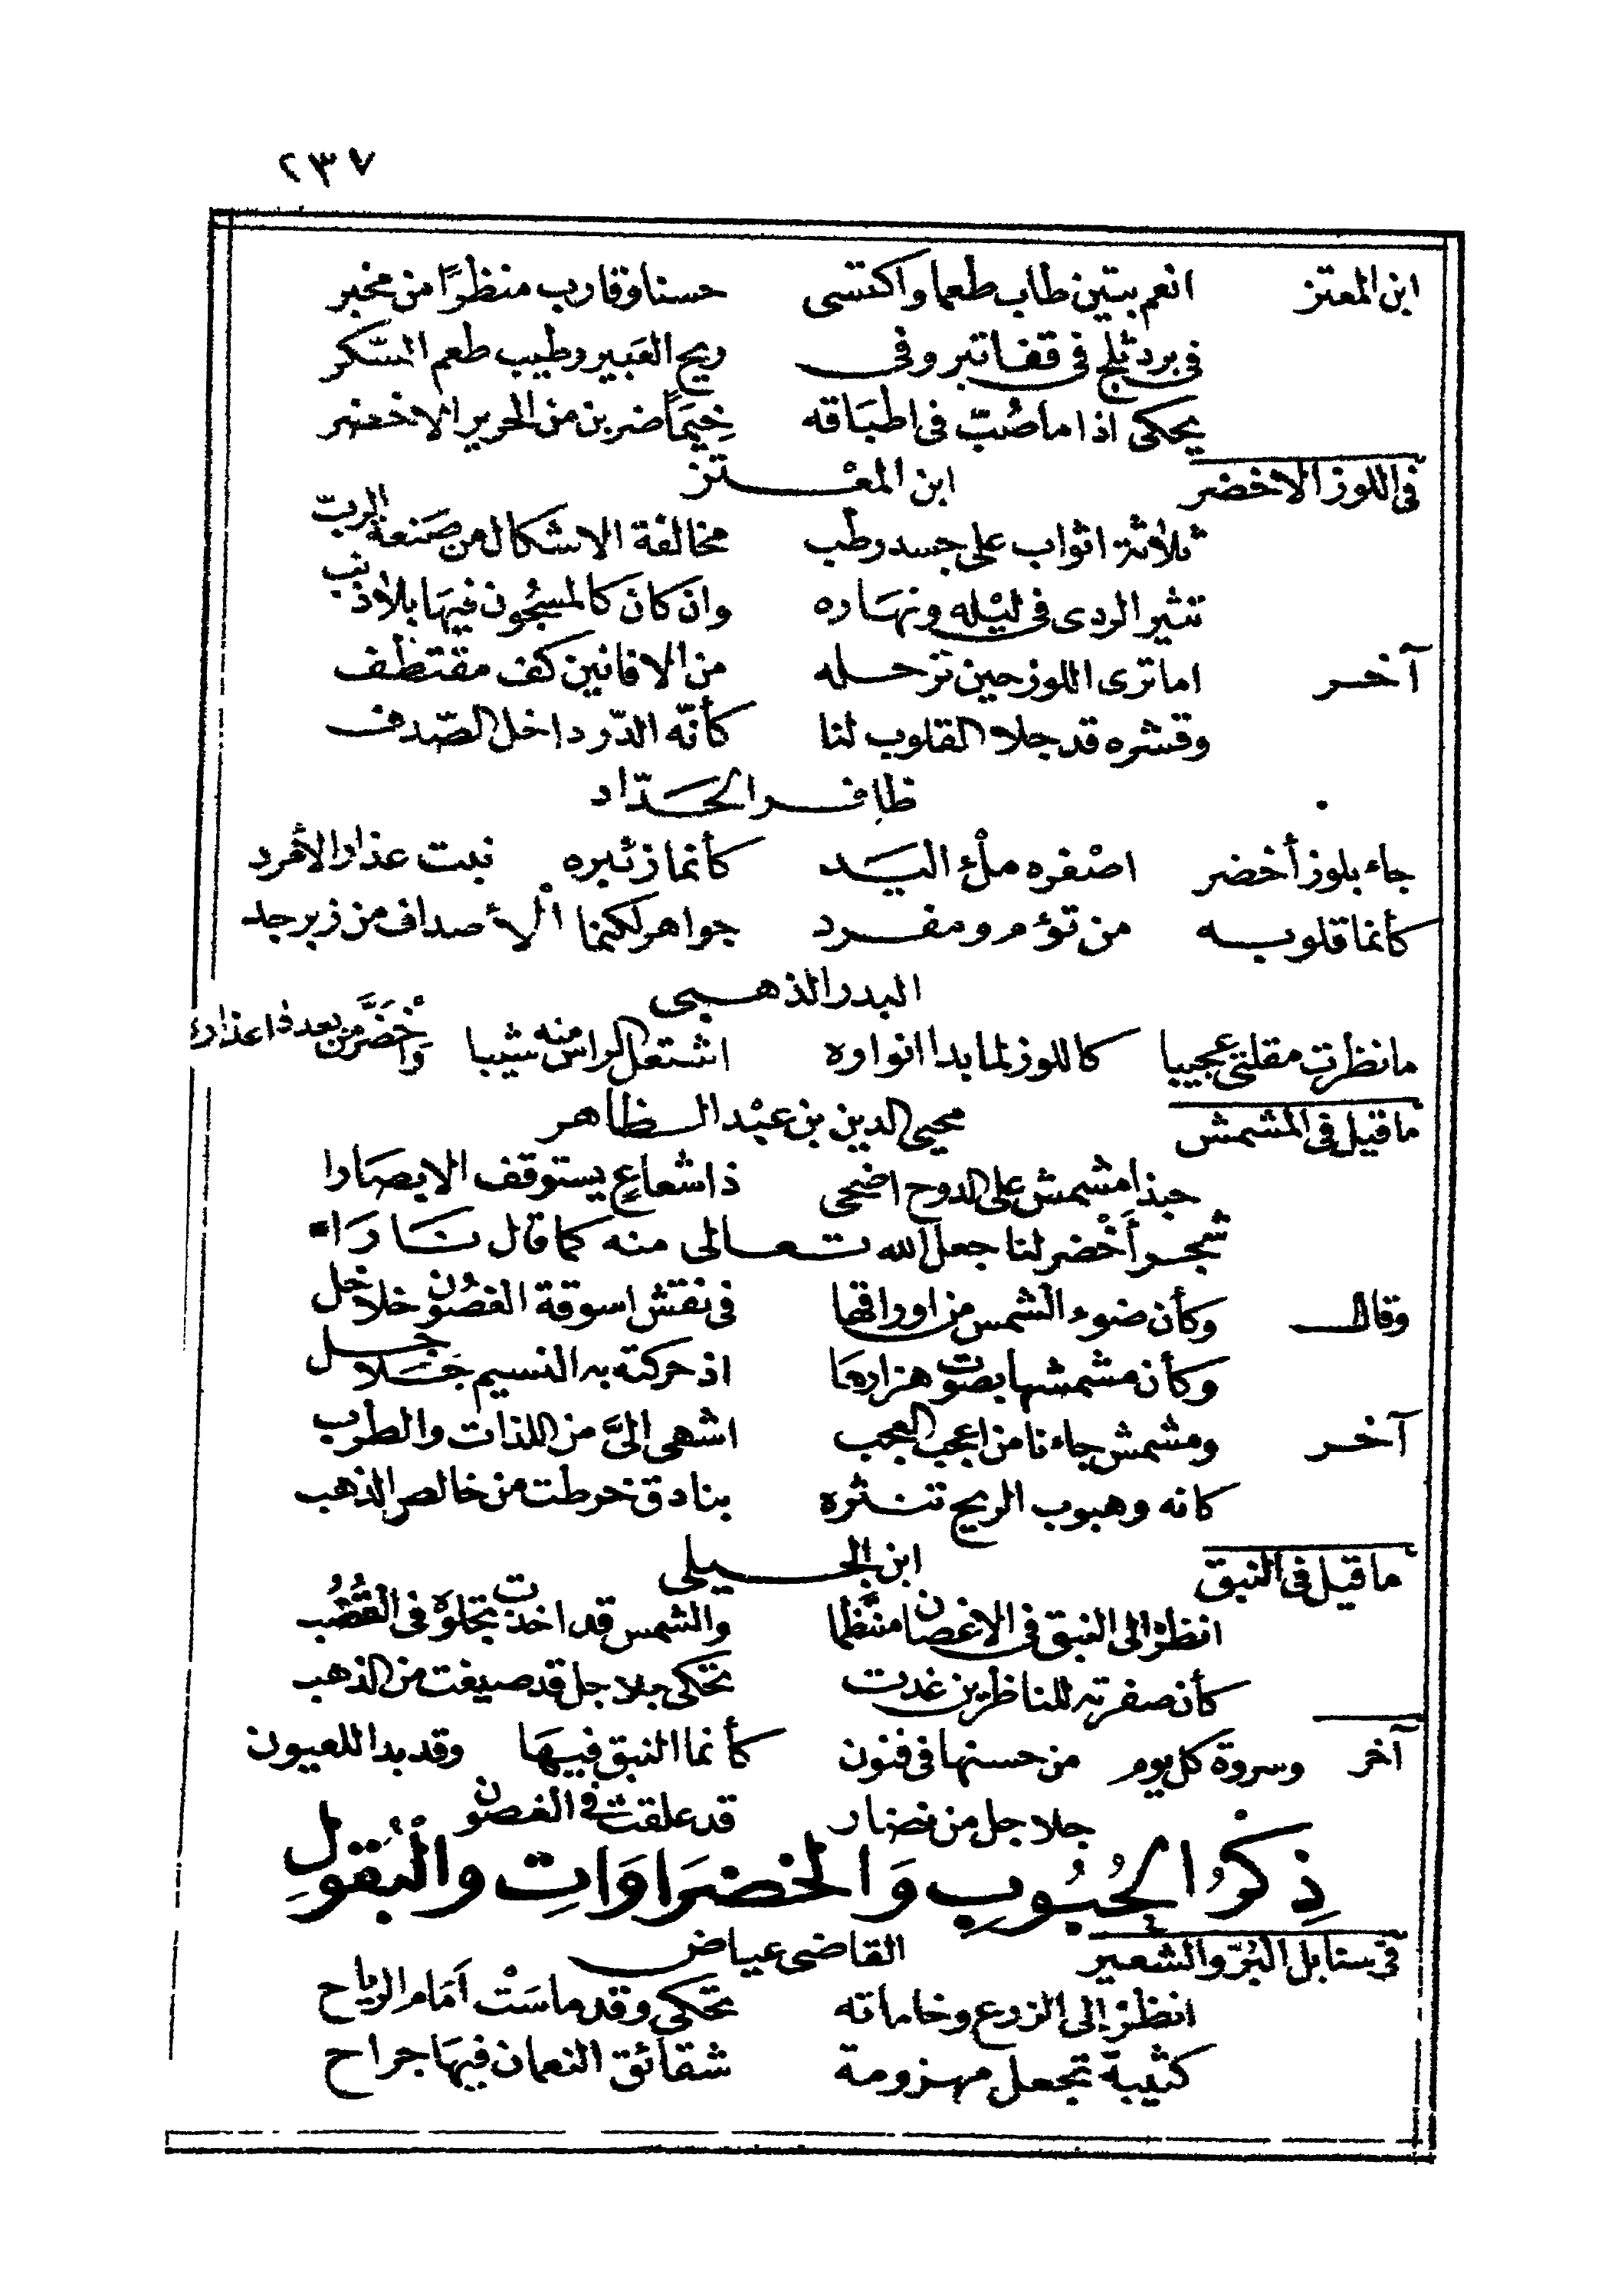 ٢٣٧
ابن المعتز انعم بتين طاب طعما واكتسى حسنا وقارب منظرًا من مخبر
فى برد ثلج فى قفا تبر وفى ريح العبير وطيب طعم السكر
يحكى اذا ما صُبّ فى اطبَاقه خِيَمًا ضربن من الحرير الاخضر
فى اللوز الاخضر ابن المعْتز
ثلاثة اثواب على جسد رطب مخالفة الاشكال من صَنعة الربّ
تنثير الردى فى ليْله ونهَاره وان كان كالمسجُون فيهَا بلا ذنب
آخر اما ترى اللوز حين ترجله من الافانين كف مقتطف
وقشره قد جلا القلوب لنا كأنّه الدّر داخل الصّدف
ظافر الحَدّاد
جاء بلوز أخضر اصْفره ملْء اليَد كأنما زئبره نبت عذار الأمْرد
كأنما قلوبه من تؤم ومفرد جواهر لكنما الْأصداف من زبرجد
البدر الذهبى
ما نظرت مقلتى عجيبا كاللوز لما بدا انواره اشتعل الراس منه شيبا وَاخْضَرَّ من بعد ذا عذاره
ما قيل فى المشمش محيى الدين بن عبْد الظاهر
حبذا مشمش على الدوح اضحى ذا شعاعٍ يستوقف الابصَارا
شجر أَخْضر لنا جعل الله تعالى منه كما قال نَارَا
وقال وكأن ضوء الشمس من اوراقها فى نقش اسوقة الغصُون خلاخل
وكأن مشمشها بصوت هزارهَا اذ حركته به النسيم جَلاجل
آخر ومشمش جاءنا من اعجب العجب اشهى الىَّ من اللذات والطرب
كانه وهبوب الريح تنثره بنادق خرطت من خالص الذهب
ما قيل فى النبق ابن الحيلى
انظرْ الى النبق فى الاغصان منتَّظما والشمس قد اخذت تجلوه فى القُضُب
كأن صفرته للناظرين غدت تحكى جلاجل قد صيغت من الذهب
آخر وسروة كل يوم من حسنها فى فنون كأنما النبق فيهَا وقد بدا للعيون
جلاجل من نضار قد علقت فى الغصون
ذِكرُ الحُبُوبِ وَالخضرَاوَاتِ والْبُقولِ
فى سنابل البُرّ والشعير القاضى عياض
انظرْ إلى الزرع وخاماته تحكى وقد ماسَتْ أمَام الرياح
كثيبة تجعل مهزومة شقائق النعمان فيهَا جراح